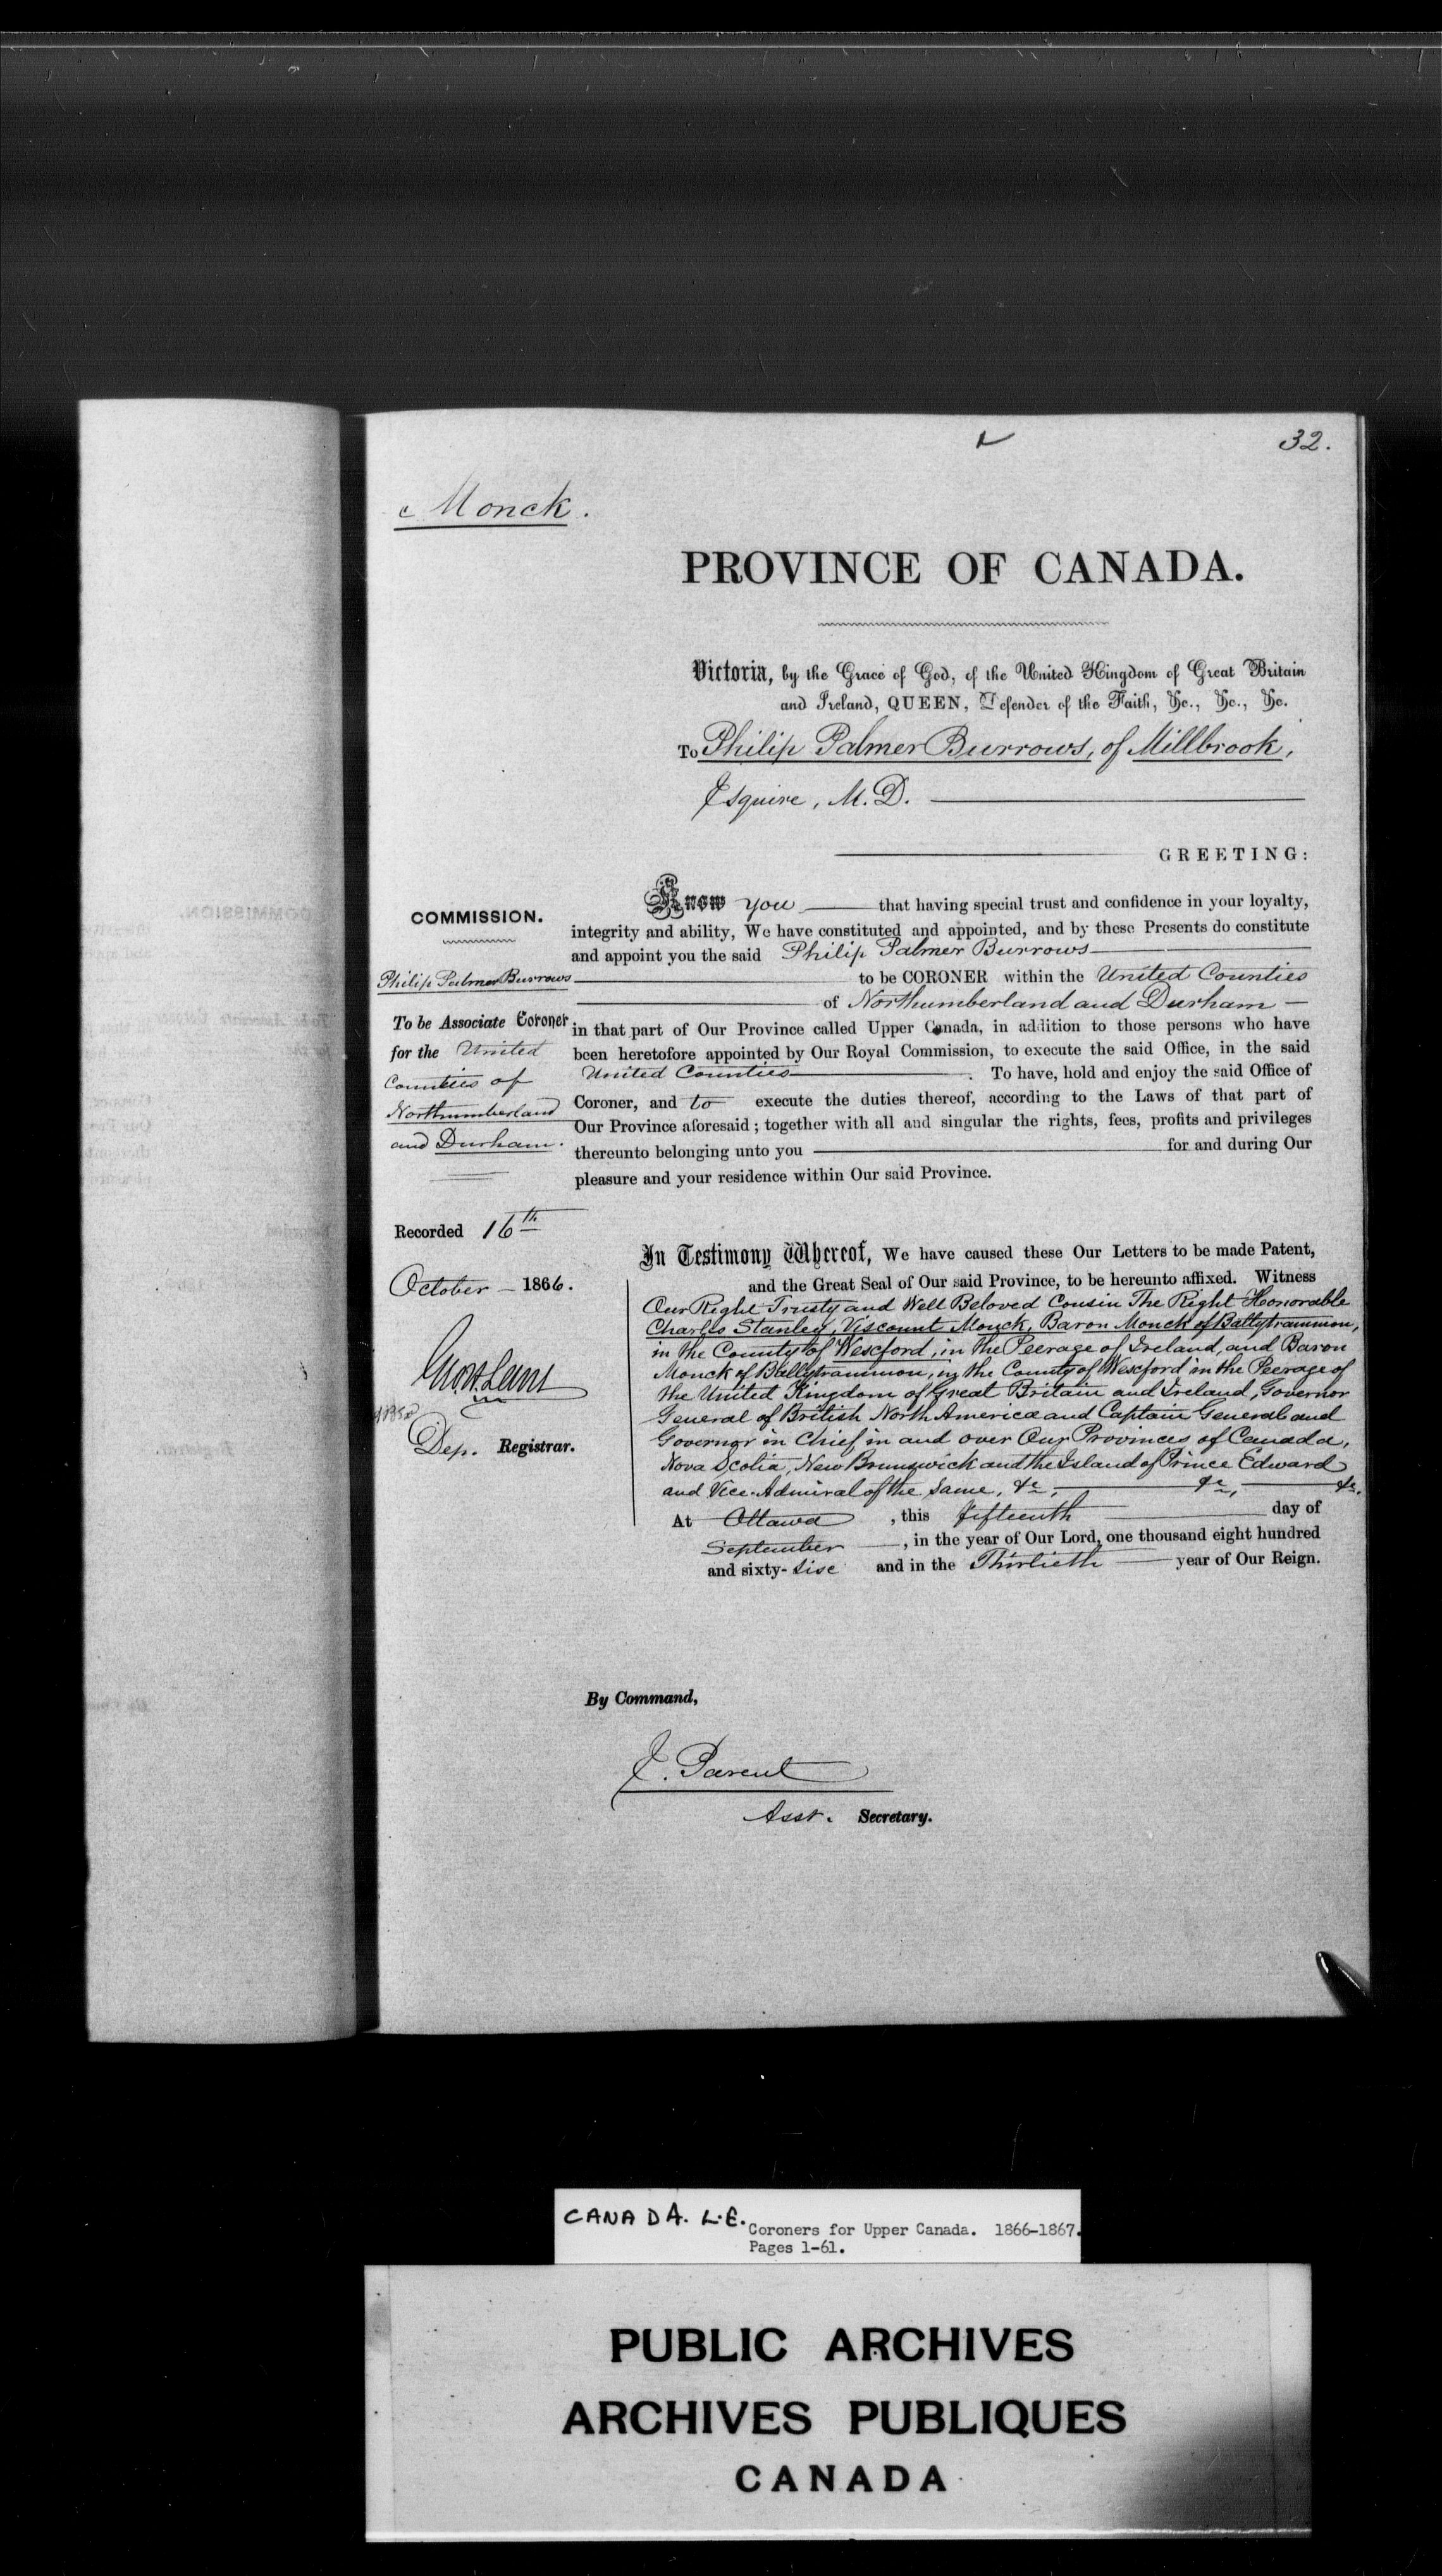 32.
Monck.
PROVINCE OF CANADA.
Victoria, by the Grace of God, of the United Kingdom of Great Britain
and Ireland, QUEEN, Defender of the Faith, &c., &c., &c.
To Philip Palmer Burrows, of Millbrook,
Esquire, M.D.
GREETING:
COMMISSION.
Philip Palmer Burrows
To be Associate Coroner
for the United
Counties of
Northumberland
and Durham.
Recorded 16th
October - 1866.
Dep. Registrar.
Know you that having special trust and confidence in your loyalty,
integrity and ability, We have constituted and appointed, and by these Presents do constitute
and appoint you the said Philip Palmer Burrows
to be CORONER within the United Counties
of Northumberland and Durham
in that part of Our Province called Upper Canada, in addition to those persons who have
been heretofore appointed by Our Royal Commission, to execute the said Office, in the said
United Counties. To have, hold and enjoy the said Office of
Coroner, and to execute the duties thereof, according to the Laws of that part of
Our Province aforesaid; together with all and singular the rights, fees, profits and privileges
thereunto belonging unto you for and during Our
pleasure and your residence within Our said Province.
In Testimony Whereof, We have caused these Our Letters to be made Patent,
and the Great Seal of Our said Province, to be hereunto affixed. Witness
Our Right Trusty and Well Beloved Cousin The Right Honorable
Charles Stanley, Viscount Monck, Baron Monck of Ballytrammon,
in the County of Wexford, in the Peerage of Ireland, and Baron
Monck of Ballytrammon, in the County of Wexford in the Peerage of
the United Kingdom of Great Britain and Ireland, Governor
General of British North America and Captain General and
Governor in Chief in and over Our Provinces of Canada,
Nova Scotia, New Brunswick and the Island of Prince Edward
and Vice-Admiral of the Same, &c, &c, &c.
At Ottawa, this fifteenth day of
September, in the year of Our Lord, one thousand eight hundred
and sixty-six and in the Thirtieth year of Our Reign.
By Command,
E. Parent
Asst. Secretary.
CANADA. L.E.
Coroners for Upper Canada. 1866-1867.
Pages 1-61.
PUBLIC ARCHIVES
ARCHIVES PUBLIQUES
CANADA